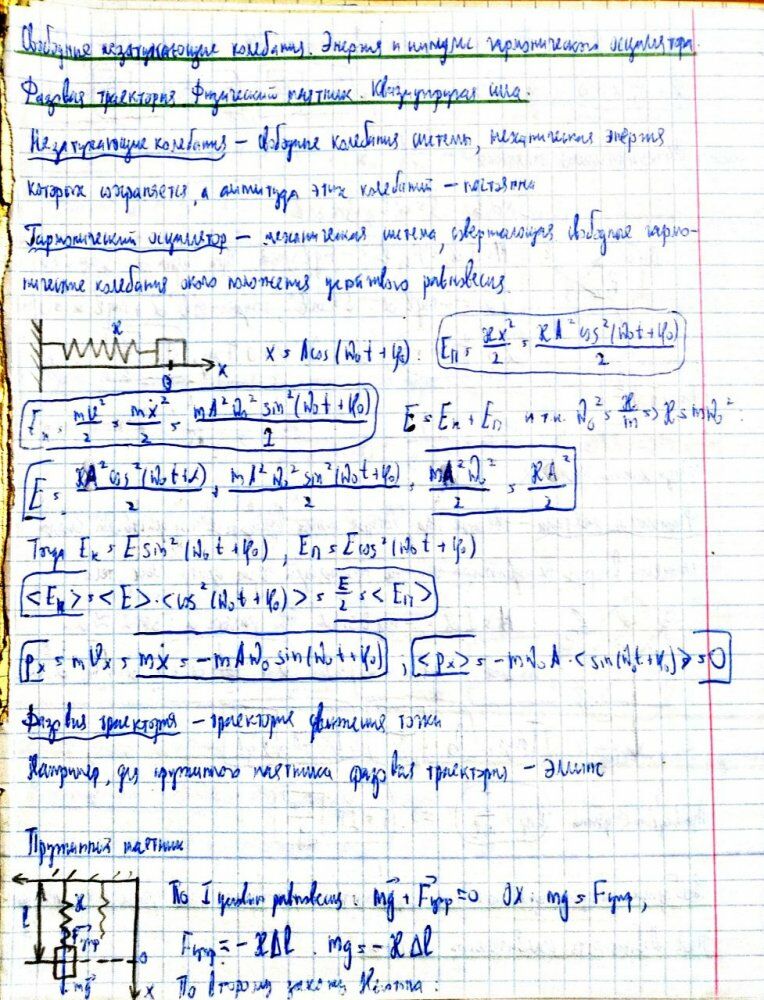 Свободные незатухающие колебания. Энергия и импульс гармонического осциллятора.
Фазовая траектория Физический маятник. Квазиупругая сила.
Незатухающие колебания – свободные колебания системы, механическая энергия
которых сохраняется, а амплитуда этих колебаний – постоянна
Гармонический осциллятор – механическая система, совершающая свободные гармо-
нические колебания около положения устойчивого равновесия.
ϰ
0 x
x = A cos(ω₀t + φ₀). Eп = ϰx²/2 = ϰA² cos²(ω₀t + φ₀)/2
Eк = mv²/2 = mẋ²/2 = mA²ω₀² sin²(ω₀t + φ₀)/2 E = Eк + Eп и т.к. ω₀² = ϰ/m => ϰ = mω₀² :
E = ϰA² cos²(ω₀t + α)/2 + mA²ω₀² sin²(ω₀t + φ₀)/2 = mA²ω₀²/2 = ϰA²/2
Тогда Eк = E sin²(ω₀t + φ₀), Eп = E cos²(ω₀t + φ₀)
<Eк> = <E> · <cos²(ω₀t + φ₀)> = E/2 = <Eп>
pₓ = mvₓ = mẋ = -mAω₀ sin(ω₀t + φ₀) ; <pₓ> = -mω₀A · <sin(ω₀t + φ₀)> = 0
Фазовая траектория – траектория движения точки
Например, для пружинного маятника фазовая траектория – эллипс
Пружинный маятник
l ϰ Fупр 0 mg x
По I условию равновесия: mg⃗ + F⃗упр = 0 OX: mg = Fупр,
Fупр = -ϰΔl . mg = -ϰΔl
По второму закону Ньютона: